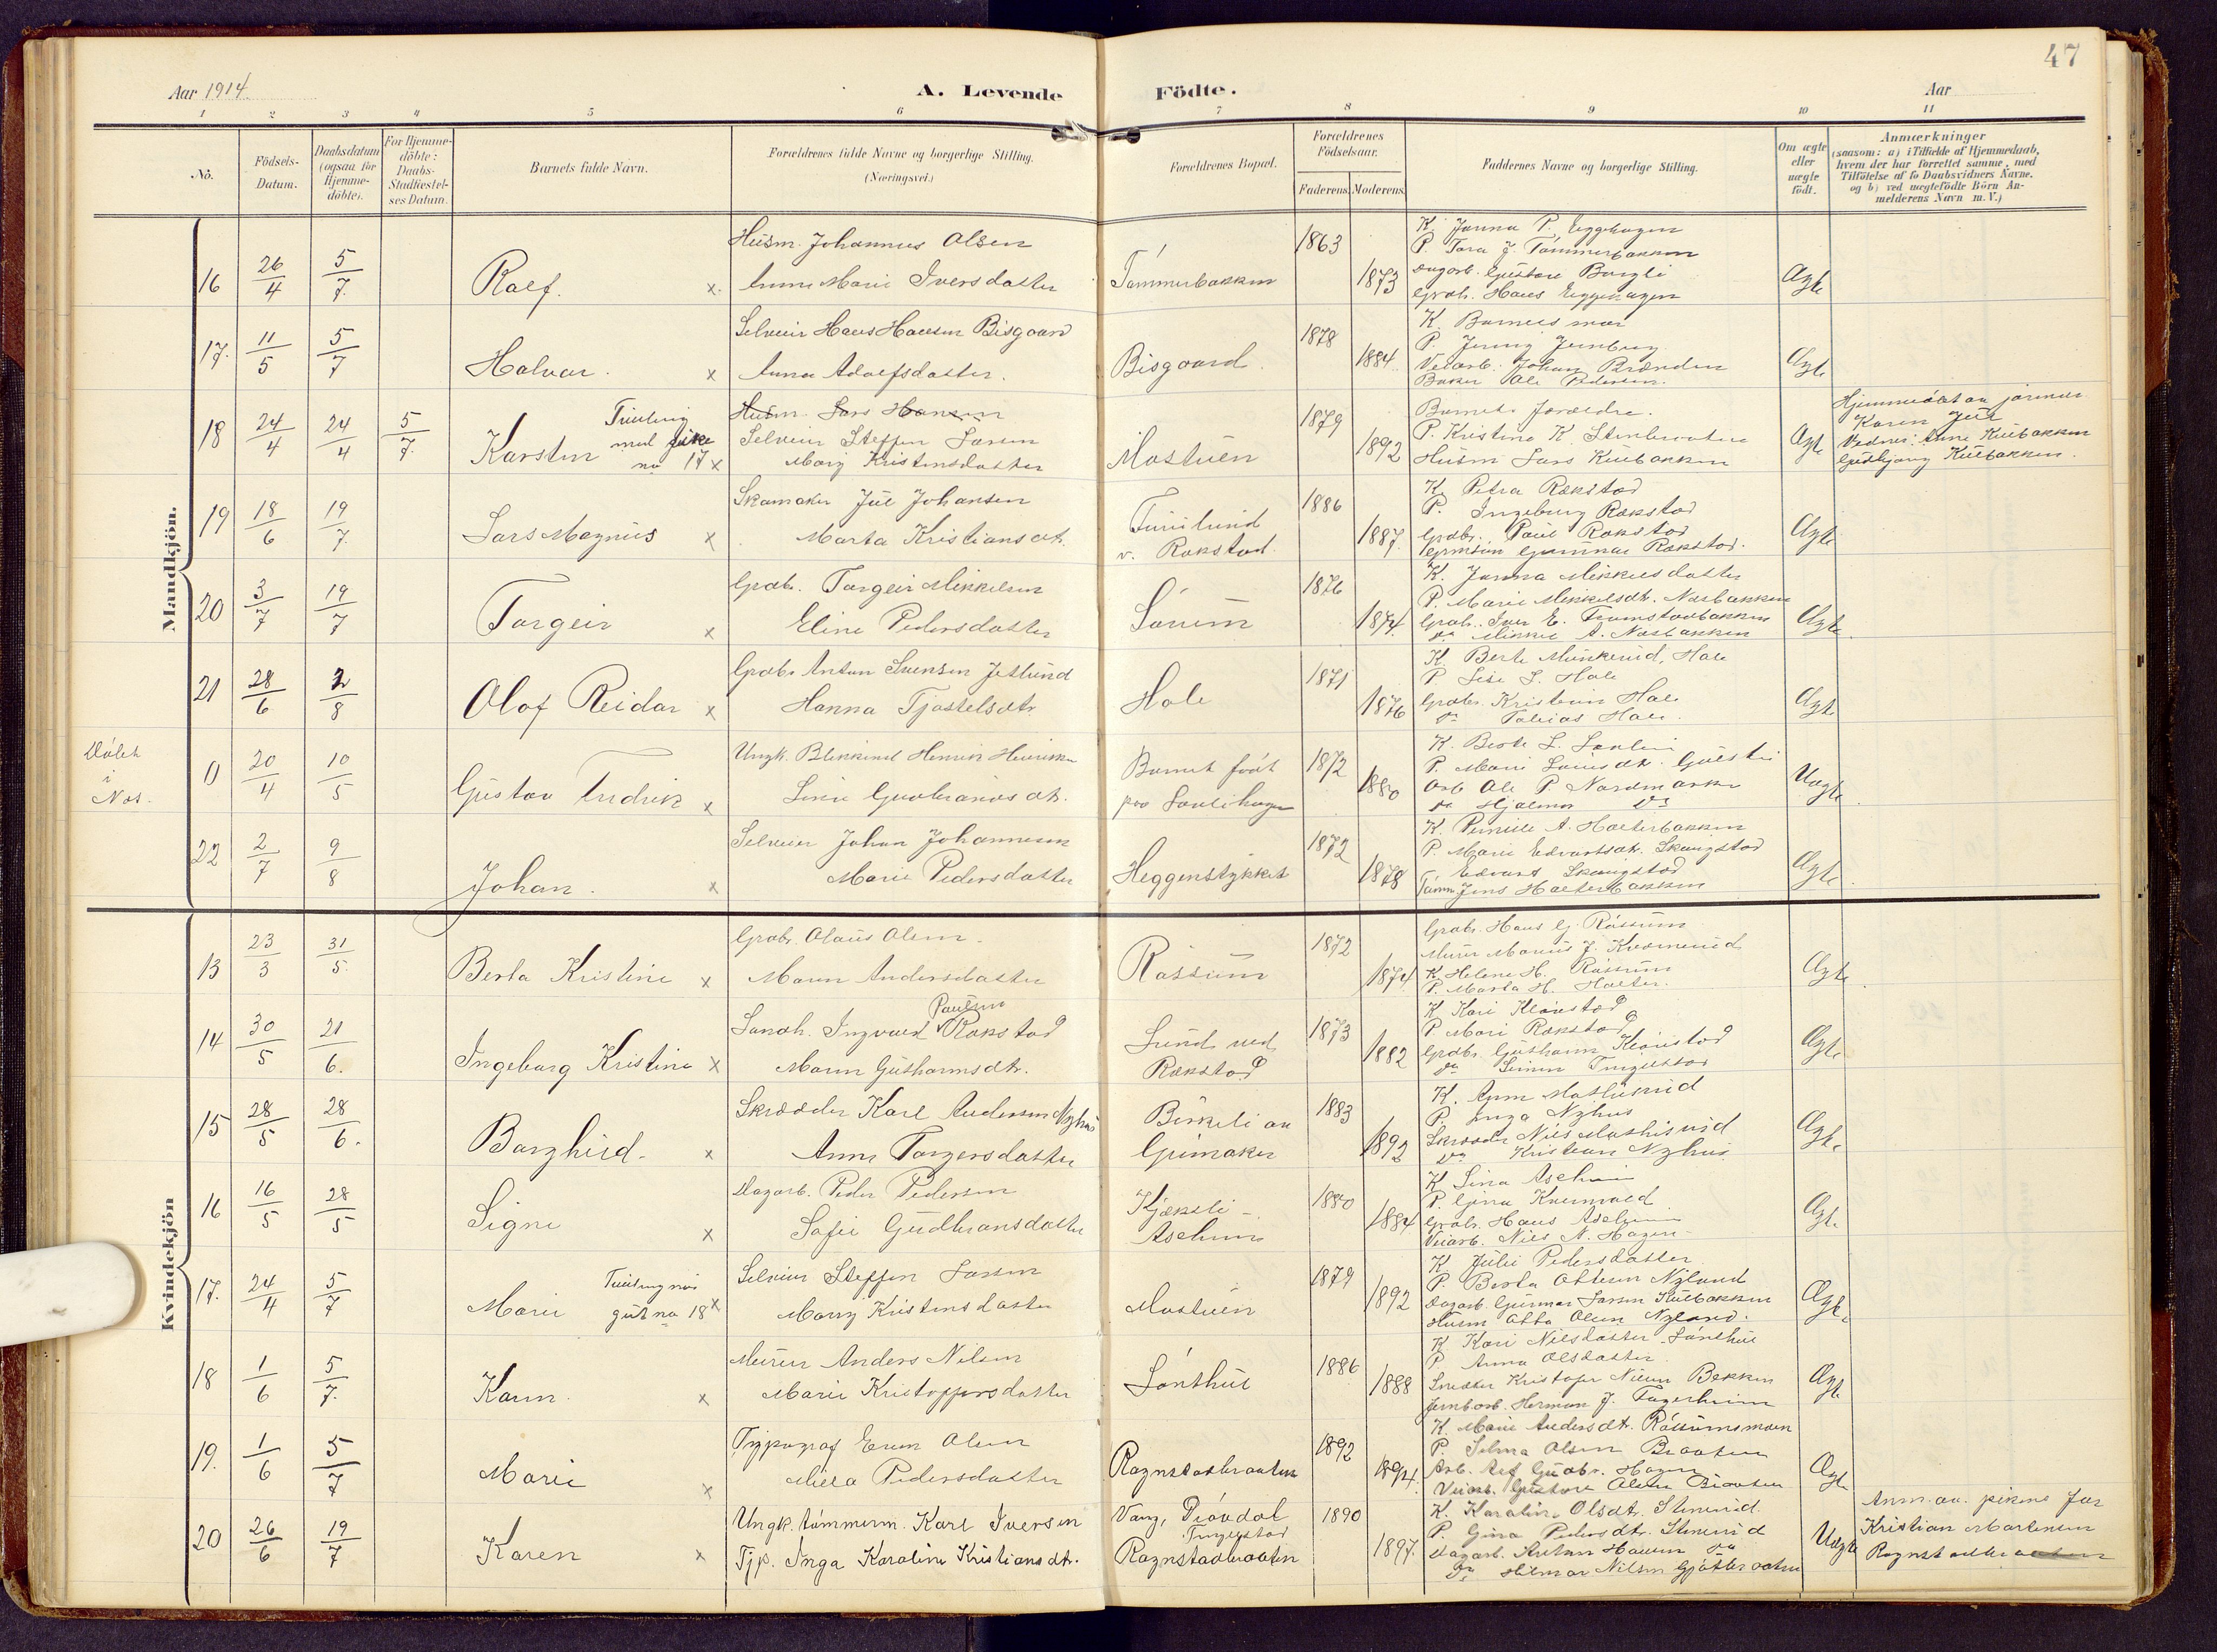 47
Aar 1914
A. Levende Födte.
Aar
1 2 3 4 5 6 7 8 9 10 11
No.
Födsels-Datum.
Daabsdatum (ogsaa for Hjemme-döbte).
For Hjemme-döbte: Daabs-Stadfæstel-ses Datum.
Barnets fulde Navn.
Forældrenes fulde Navne og borgerlige Stilling.
(Næringsvei.)
Forældrenes Bopæl.
Forældrenes Födselsaar.
Faderens. Moderens.
Faddernes Navne og borgerlige Stilling.
Om ægte eller uægte födt.
Anmærkninger
(saasom: a) i Tilfælde af Hjemmedaab,
hvem der har forrettet samme, med
Tilföielse af to Daabsvidners Navne,
og b) ved uægtefödte Börn An-
melderens Navn m. V.)
Mandkjön.
16 26/4 5/7. Ralf. x
Husm. Johannes Olsen
Anne Marie Iversdatter
Tömmerbakken
1863 1873
K. Janna P. Eggehagen
P. Tora J. Tömmerbakken
Dagarb. Gustav Borgli
Grdb. Hans Eggehagen
Ægte
17. 11/5 5/7 Halvar. x
Selveier Hans Hansen Bisgaard
Anna Adolfsdatter.
Bisgaard.
1878 1884.
K. Barnets mor
P. Jenny Jernberg
Veiarb. Johan Brænden
Baker Ole Pedersen.
Ægte
18 24/4 24/4 5/7. Karsten Tvilling med pike no 17 x
Husm. Lars Hansen
Selveier Steffen Larsen
Mary Kristensdatter
Mostuen
1879 1892
Barnets foreldre.
P. Kristine K. Stenbraaten
Husm Lars Kulbakken
Ægte
Hjemmedöbt av jormor
Karen Juel
Vidner: Anne Kulbakken
Gudbjørg Kulbakken.
19 18/6 19/7. Lars Magnus x
Skomaker Jul Johansen
Marta Kristiansdt.
Furulund
v. Rokstad.
1886 1887.
K. Petra Rokstad
P. Ingeborg Rokstad
Grdbr. Paul Rokstad
Grdmson Gunnar Rokstad.
Ægte
20 3/7 19/7 Torgeir x
Grdbr. Torgeir Mikkelsen
Eline Pedersdatter
Sörum
1876 1874.
K. Janna Mikkelsdatter
P. Marie Mikkelsdt. Næsbakken
Grdb. Iver E. Tromstadbakken
do Mikkel A. Næsbakken
Ægte
21 28/6 2/8 Olof Reidar x
Grdbr Anton Svensen Jetlund
Hanna Tjøstelsdtr
Hole
1871 1876
K. Berte Munkerud, Hole
P Lise L. Hole
Grdbr. Kristian Hole
do Tobias Hole.
Ægte
Döbt
i
Nes.
0 20/4 10/5 Gustav Fredrik x
Ungk. Blikkensl Henrik Henriksen
Line Gudbrandsdt.
Barnet födt
paa Lauvlihagen
1872 1880
K. Berte L. Lauvlien
P. Marie Louisdt. Gulstie
Arb Ole P Nordmarken
do Hjalmar do
Uægte
22 2/7 9/8 Johan. x
Selveier Johan Johannesen
Marie Pedersdatter
Heggenstykket
1872 1878
K. Pernille A. Holterbakken
P. Marie Edvartsdt. Skougstad
Edvart Skougstad
Tömm Jens Holterbakken
Ægte
Kvindekjön
13 23/3 31/5. Berta Kristine x
Grdbr. Olaus Olsen.
Maren Andersdatter
Røssum
1872 1874.
Grdbr. Hans G. Røssum
Murer Marius J. Kvæmerud
K. Helene H. Røssum
P. Marta H. Holter.
Ægte
14 30/5 21/6. Ingeborg Kristine x
Paulsen
Landh. Ingvald Rokstad
Maren Guthormsdtr.
Lund ved
Rokstad
1873 1882
K Kari Klævstad
P Mari Rokstad
Grdbr. Guthorm Klævstad
do Simen Tingelstad
Ægte
15 28/5 28/6. Borghild. x
Skrædder Karl Andersen Nyhus
Anne Torgersdatter
Birkeli av
Grimaker
1883 1892
K. Anne Mathisrud
P. Inga Nyhus
Skrædder Nils Mathisrud
do Kristian Nyhus
Ægte
16 16/5 28/5 Signe x
Dagarb. Peder Pedersen
Sofie Gudbransdatter
Kjøksli -
Aschim
1880 1884
K Lina Aschim
P. Gina Kvernvold
Grdb. Hans Aschim
Veiarb. Nils N. Hagen
Ægte
17. 24/4 5/7 Marie Tvilling med gut no 18 x
Selveier Steffen Larsen
Marry Kristensdatter
Mostuen
1879 1892
K Julie Pedersdatter
P. Berta Ottesen Nyland
Dagarb. Gunnar Larsen Kulbakken
Husm Otto Olsen Nyland.
Ægte
18 1/6 5/7. Karen. x
Murer Anders Nilsen
Marie Kristoffersdatter
Lönhul
1886 1888
K Kari Nilsdatter Lönehul
P. Anna Olsdatter.
Snekker Kristofer Nilsen Bekken
Jernbarb. Herman J. Fagerheim
Ægte
19. 1/6 5/7 Marie x
Typograf Even Olsen
Milla Pedersdatter
Rognstadbraaten
1892 1894.
K. Marie Andersdt. Røssumsmoen
P. Selma Olsen Braaten
Arb. Alf Gudbr. Hagen
Veiarb. Gustav Olsen Braaten
Ægte
20 26/6 19/7 Karen x
Ungk. tömmerm. Karl Iversen
Tjp. Inga Karoline Kristiansdt.
Vang, Pröudal
Tingelstad
Rognstadbraaten
1890 1897.
K. Karoline Olsdt. Stenerud.
P. Gina Pedersdt. Stenerud
Dagarb. Anton Hansen do
do Hilmar Nilsen Gjötlerøten
Uægte
Anm. av. pikens far
Kristian Martinsen
Rognstadbraaten